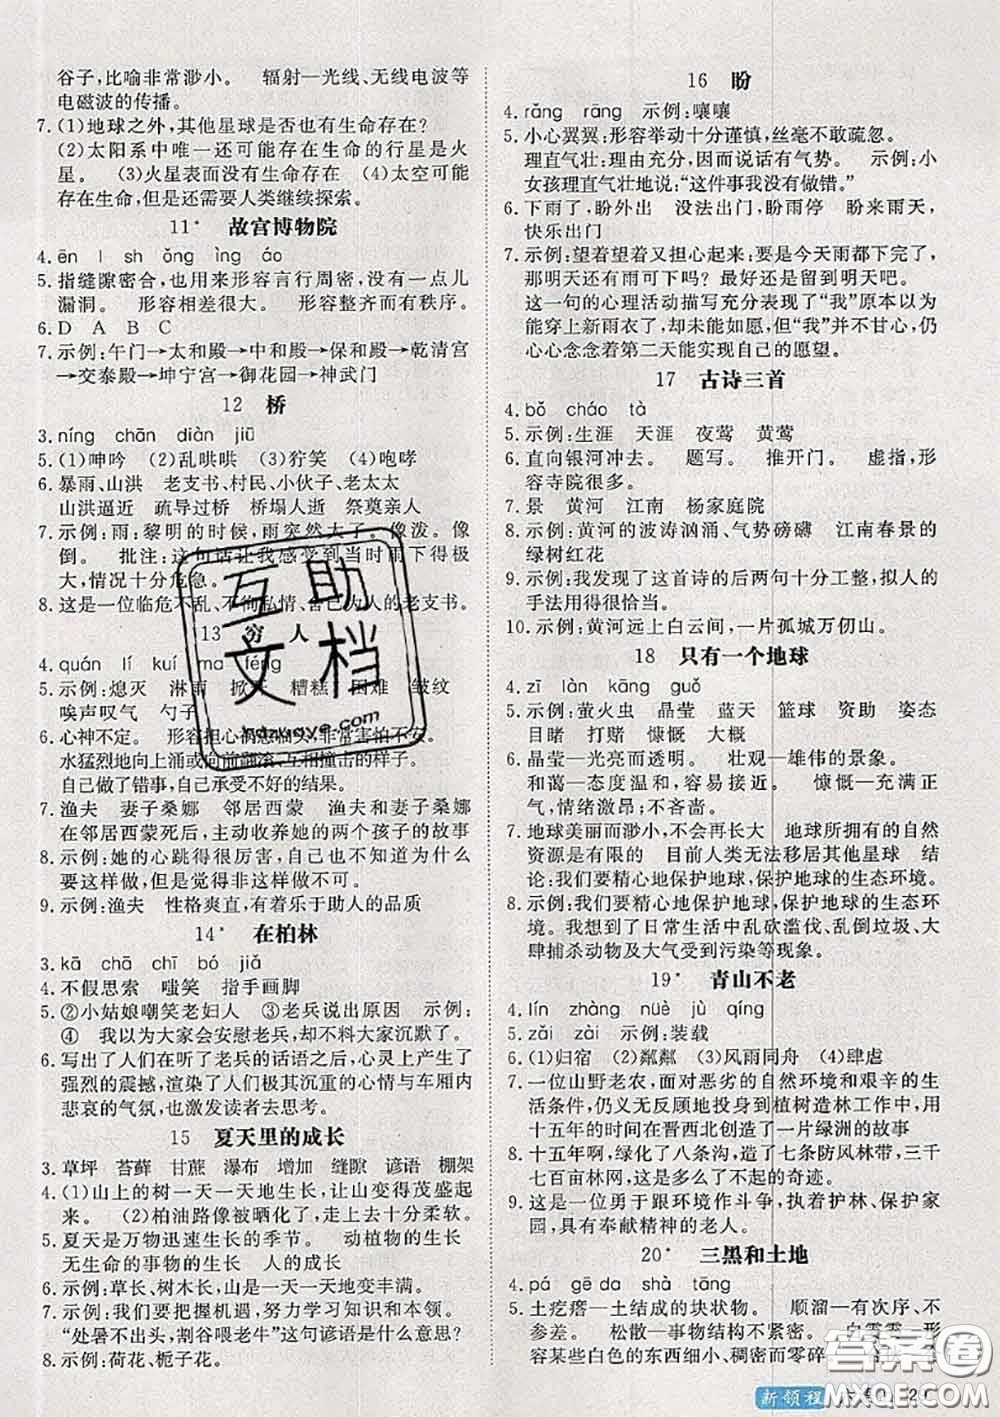 谷子,比喻非常渺小。 辐射—光线、无线电波等
电磁波的传播。
7.(1)地球之外,其他星球是否也有生命存在?
(2)太阳系中唯一还可能存在生命的行星是火
星。 (3)火星表面没有生命存在 (4)太空可能
存在生命,但是还需要人类继续探索。
11* 故宫博物院
4.ēn l sh ǒng ìng áo
5.指缝隙密合,也用来形容言行周密,没有一点儿
漏洞。 形容相差很大。 形容整齐而有秩序。
6.D A B C
7.示例:午门→太和殿→中和殿→保和殿→乾清宫
→交泰殿→坤宁宫→御花园→神武门
12 桥
3.níng chān diàn jiū
5.(1)呻吟 (2)乱哄哄 (3)狞笑 (4)咆哮
6.暴雨、山洪 老支书、村民、小伙子、老太太
山洪逼近 疏导过桥 桥塌人逝 祭奠亲人
7.示例:雨:黎明的时候,雨突然大了。像泼。像
倒。 批注:这句话让我感受到当时雨下得极
大,情况十分危急。
8.这是一位临危不乱、不徇私情、舍己为人的老支书。
13 穷人
4.quán lí kuí ma féng
5.示例:熄灭 淋雨 掀开 糟糕 困难 皱纹
唉声叹气 勺子
6.心神不定。 形容担心祸患临头,非常害怕不安。
水猛烈地向上涌或向前翻滚、互相撞击的样子。
自己做了错事,自己承受不好的结果。
7.渔夫 妻子桑娜 邻居西蒙 渔夫和妻子桑娜
在邻居西蒙死后,主动收养她的两个孩子的故事
8.示例:她的心跳得很厉害,自己也不知道为什么
要这样做,但是觉得非这样做不可。
9.示例:渔夫 性格爽直,有着乐于助人的品质
14* 在柏林
3.kā chā chī bó jiǎ
4.不假思索 嗤笑 指手画脚
5.②小姑娘嘲笑老妇人 ③老兵说出原因 示例:
④ 我以为大家会安慰老兵,却不料大家沉默了。
6.写出了人们在听了老兵的话语之后,心灵上产生了
强烈的震撼,渲染了人们极其沉重的心情与车厢内
悲哀的气氛,也激发读者去思考。
15 夏天里的成长
3.草坪 苔藓 甘蔗 瀑布 增加 缝隙 谚语 棚架
4.(1)山上的树一天一天地生长,让山变得茂盛起
来。 (2)柏油路像被晒化了,走上去十分柔软。
5.夏天是万物迅速生长的季节。 动植物的生长
无生命的事物的生长 人的成长
6.示例:草长,树木长,山是一天一天地变丰满。
7.示例:我们要把握机遇,努力学习知识和本领。
“处暑不出头,割谷喂老牛”这句谚语是什么意思?
8.示例:荷花、栀子花。
16 盼
4.rǎng rāng 示例:嚷嚷
5.小心翼翼:形容举动十分谨慎,丝毫不敢疏忽。
理直气壮:理由充分,因而说话有气势。 示例:小
女孩理直气壮地说:“这件事我没有做错。”
6.下雨了,盼外出 没法出门,盼雨停 盼雨后,
快乐出门
7.示例:望着望着又担心起来:要是今天雨都下完了,
那明天还有雨可下吗? 最好还是留到明天吧。
这一句的心理活动描写充分表现了“我”原本以为
能穿上新雨衣了,却未能如愿,但“我”并不甘心,仍
心心念念着第二天能实现自己的愿望。
17 古诗三首
4.bǒ cháo tà
5.示例:生涯 天涯 夜莺 黄莺
6.直向银河冲去。 题写。 推开门。 虚指,形
容寺院很多。
7.景 黄河 江南 杨家庭院
8.示例:黄河的波涛汹涌、气势磅礴 江南春景的
绿树红花
9.示例:我发现了这首诗的后两句十分工整,拟人的
手法用得很恰当。
10.示例:黄河远上白云间,一片孤城万仞山。
18 只有一个地球
4.zī làn kāng guǒ
5.示例:萤火虫 晶莹 蓝天 篮球 资助 姿态
目睹 打赌 慷慨 大概
6.晶莹—光亮而透明。 壮观—雄伟的景象。
和蔼—态度温和,容易接近。 慷慨—充满正
气,情绪激昂;不吝啬。
7.地球美丽而渺小,不会再长大 地球所拥有的自然
资源是有限的 目前人类无法移居其他星球 结
论:我们要精心地保护地球,保护地球的生态环境。
8.示例:我们要精心地保护地球,保护地球的生态环
境。 我想到了日常生活中乱砍滥伐、乱倒垃圾、大
肆捕杀动物及大气受到污染等现象。
19* 青山不老
4.lín zhàng nüè jù qíng
5.zǎi zài 示例:装载
6.(1)归宿 (2)粼粼 (3)风雨同舟 (4)肆虐
7.一位山野老农,面对恶劣的自然环境和艰辛的生
活条件,义无反顾地投身到植树造林工作中,用
十五年的时间在晋西北创造了一片绿洲的故事
8.十五年啊,绿化了八条沟,造了七条防风林带,三千
七百亩林网,这是一个多么了不起的奇迹。
9.这是一位勇于跟环境作斗争,执着护林、保护家
园,具有奉献精神的老人。
20* 三黑和土地
4.pá gē da shà tāng
5.土疙瘩—土结成的块状物。 顺溜—有次序,不
参差。 松散—事物结构不紧密。 白霎霎—形
容某些白色的东西细小、稠密而零碎
新领程
互助
文档
hdzuoye.com
答案圈
MXQE.COM